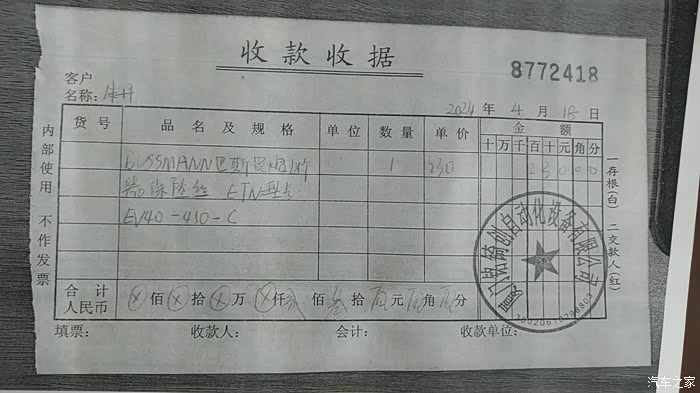 收款收据
8772418
客户
名称：
2024 年 4 月 18 日
货号 品名及规格 单位 数量 单价 金额
十 万 千 百 十 元 角 分
BUSSMANN巴斯曼熔断 1 230 2 3 0 0 0
器保险丝 ETN型号
EV40-450-C
合计
人民币 ⊗佰⊗拾⊗万⊗仟贰佰叁拾零元零角零分
填票： 收款人： 会计： 收款单位：
内部使用 不作发票
一存根(白) 二交款人(红)
自动化设备有限公司
汽车之家